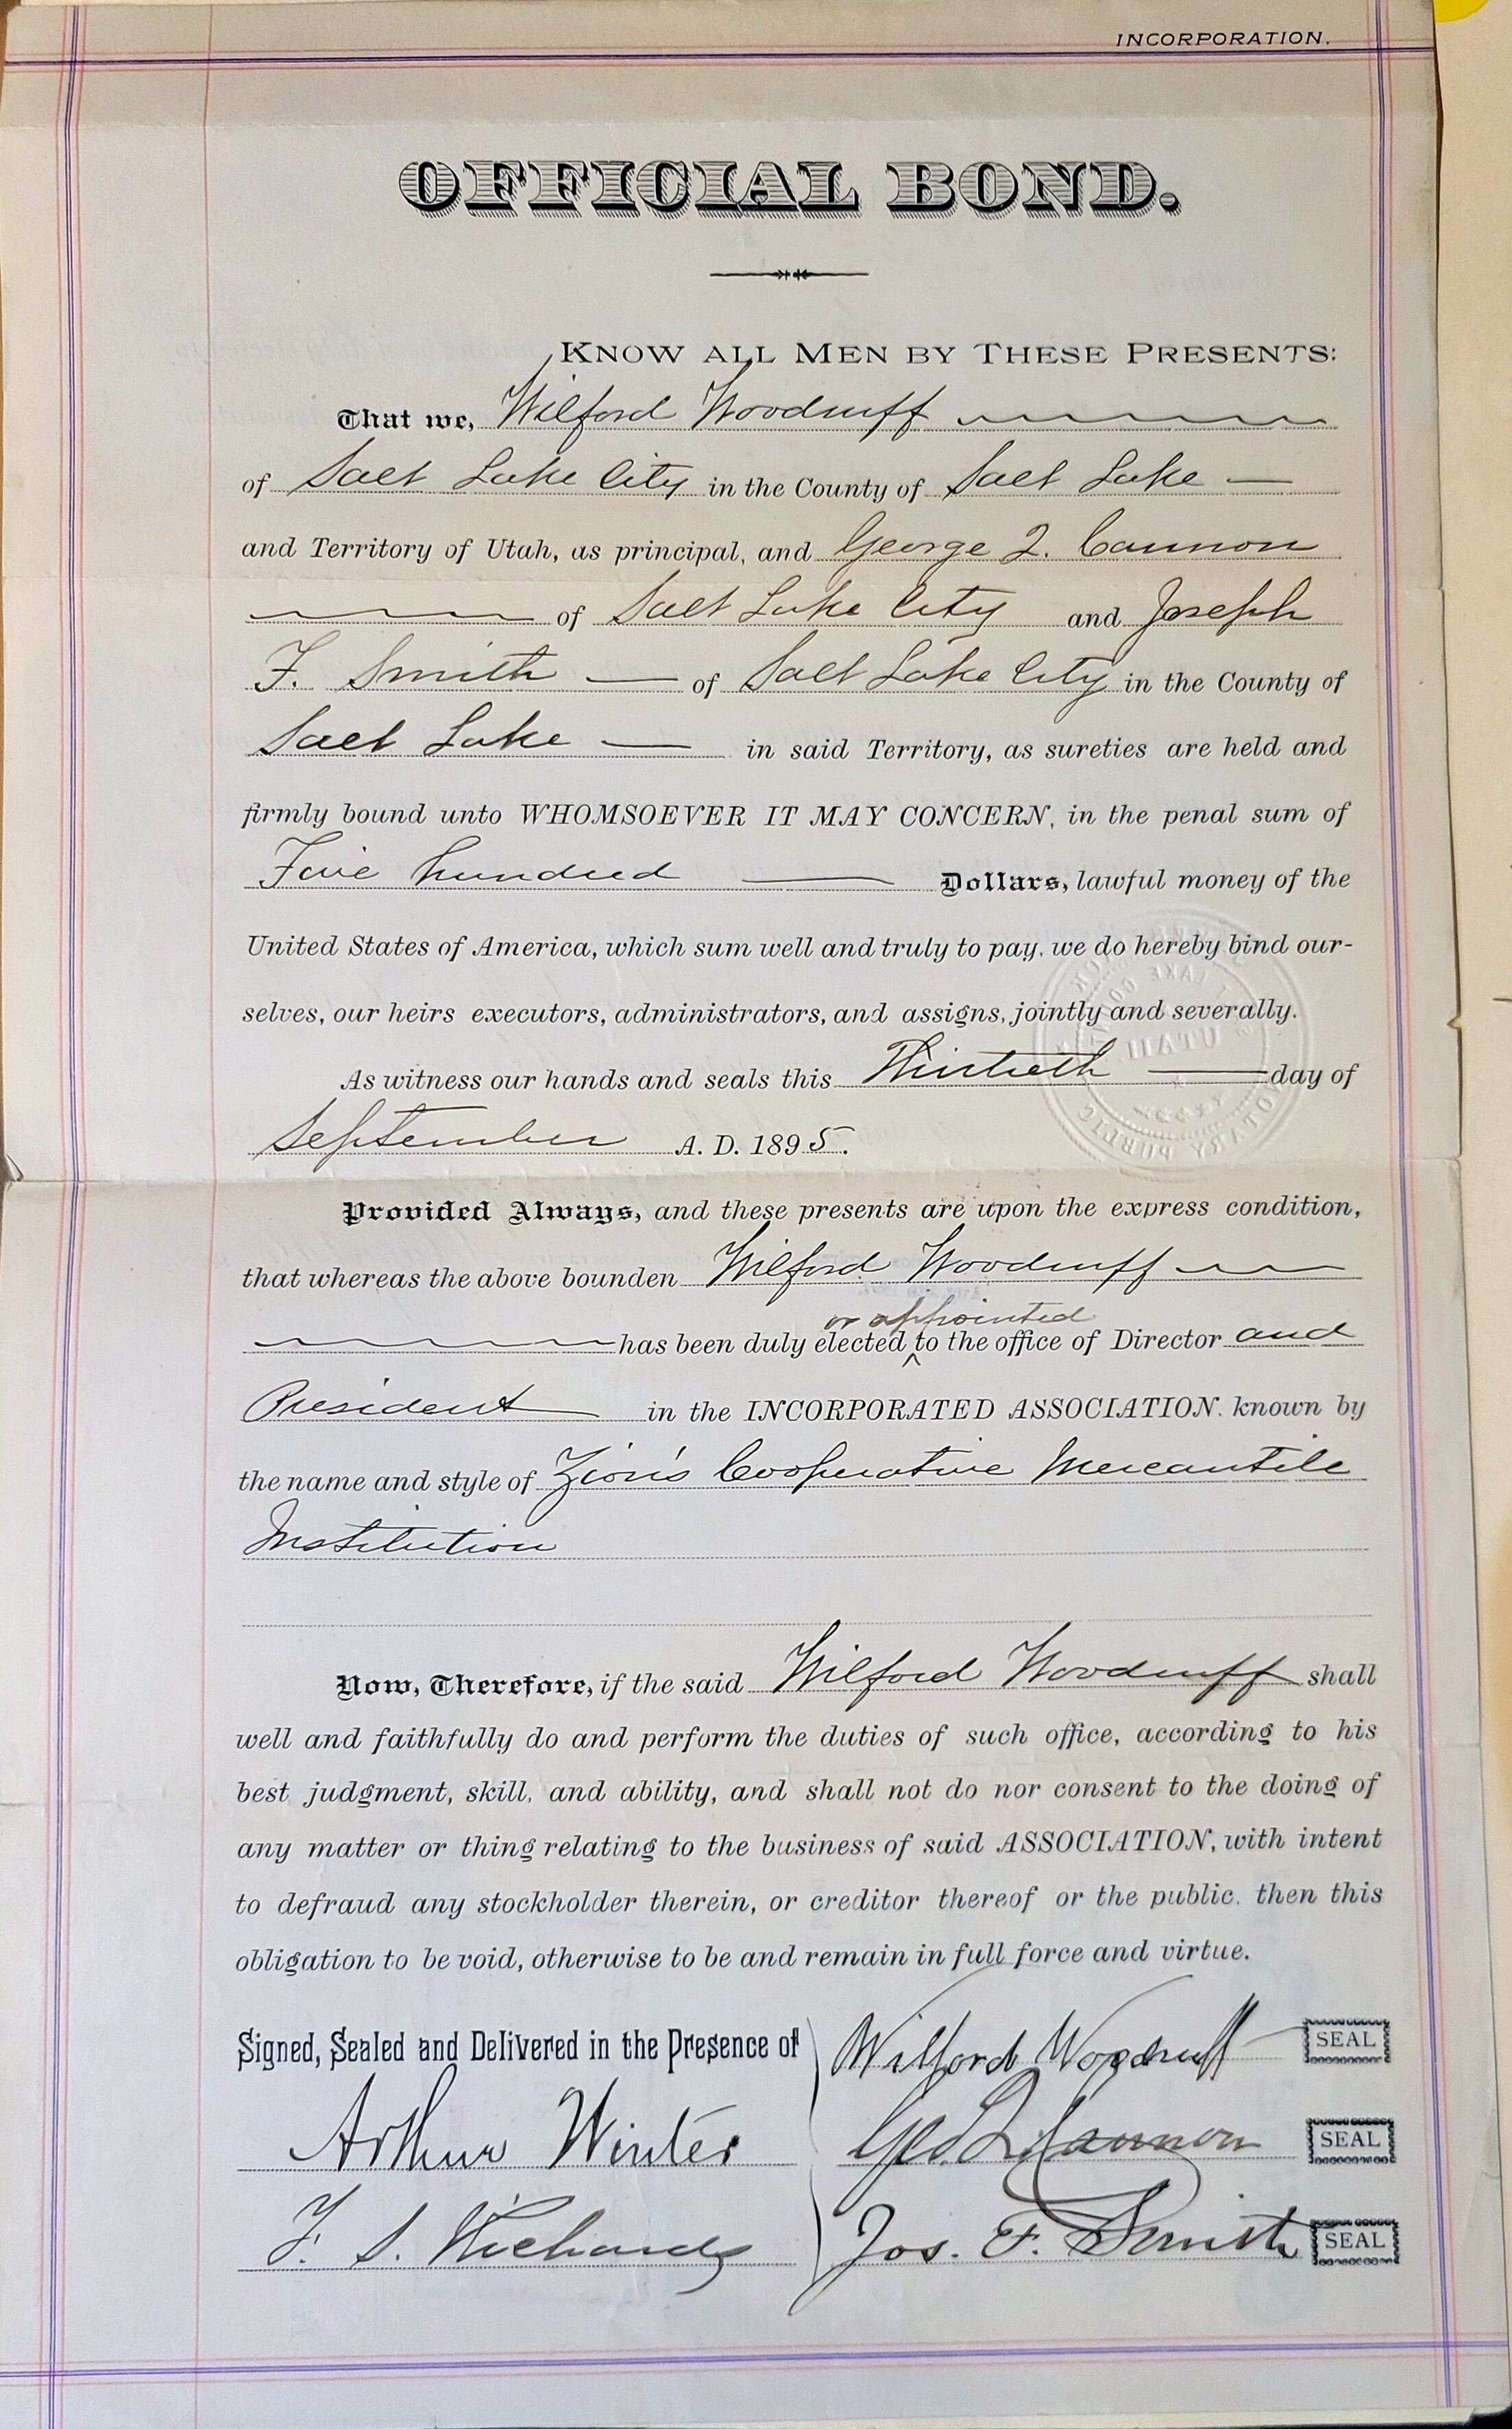 INCORPORATION.
OFFICIAL BOND.
KNOW ALL MEN BY THESE PRESENTS:
That we, Wilford Woodruff
of Salt Lake City in the County of Salt Lake —
and Territory of Utah, as principal, and George Q. Cannon
of Salt Lake City and Joseph
F. Smith — of Salt Lake City in the County of
Salt Lake — in said Territory, as sureties are held and
firmly bound unto WHOMSOEVER IT MAY CONCERN, in the penal sum of
Five hundred — Dollars, lawful money of the
United States of America, which sum well and truly to pay, we do hereby bind our-
selves, our heirs executors, administrators, and assigns, jointly and severally.
As witness our hands and seals this Thirtieth — day of
September A. D. 1895.
NOTARY PUBLIC
UTAH
Provided Always, and these presents are upon the express condition,
that whereas the above bounden Wilford Woodruff
or appointed
has been duly elected ^ to the office of Director and
President in the INCORPORATED ASSOCIATION, known by
the name and style of Zion's Cooperative Mercantile
Institution
Now, Therefore, if the said Wilford Woodruff shall
well and faithfully do and perform the duties of such office, according to his
best judgment, skill, and ability, and shall not do nor consent to the doing of
any matter or thing relating to the business of said ASSOCIATION, with intent
to defraud any stockholder therein, or creditor thereof or the public, then this
obligation to be void, otherwise to be and remain in full force and virtue.
Signed, Sealed and Delivered in the Presence of
Wilford Woodruff SEAL
Arthur Winter
Geo. Q. Cannon SEAL
F. S. Richards
Jos. F. Smith SEAL